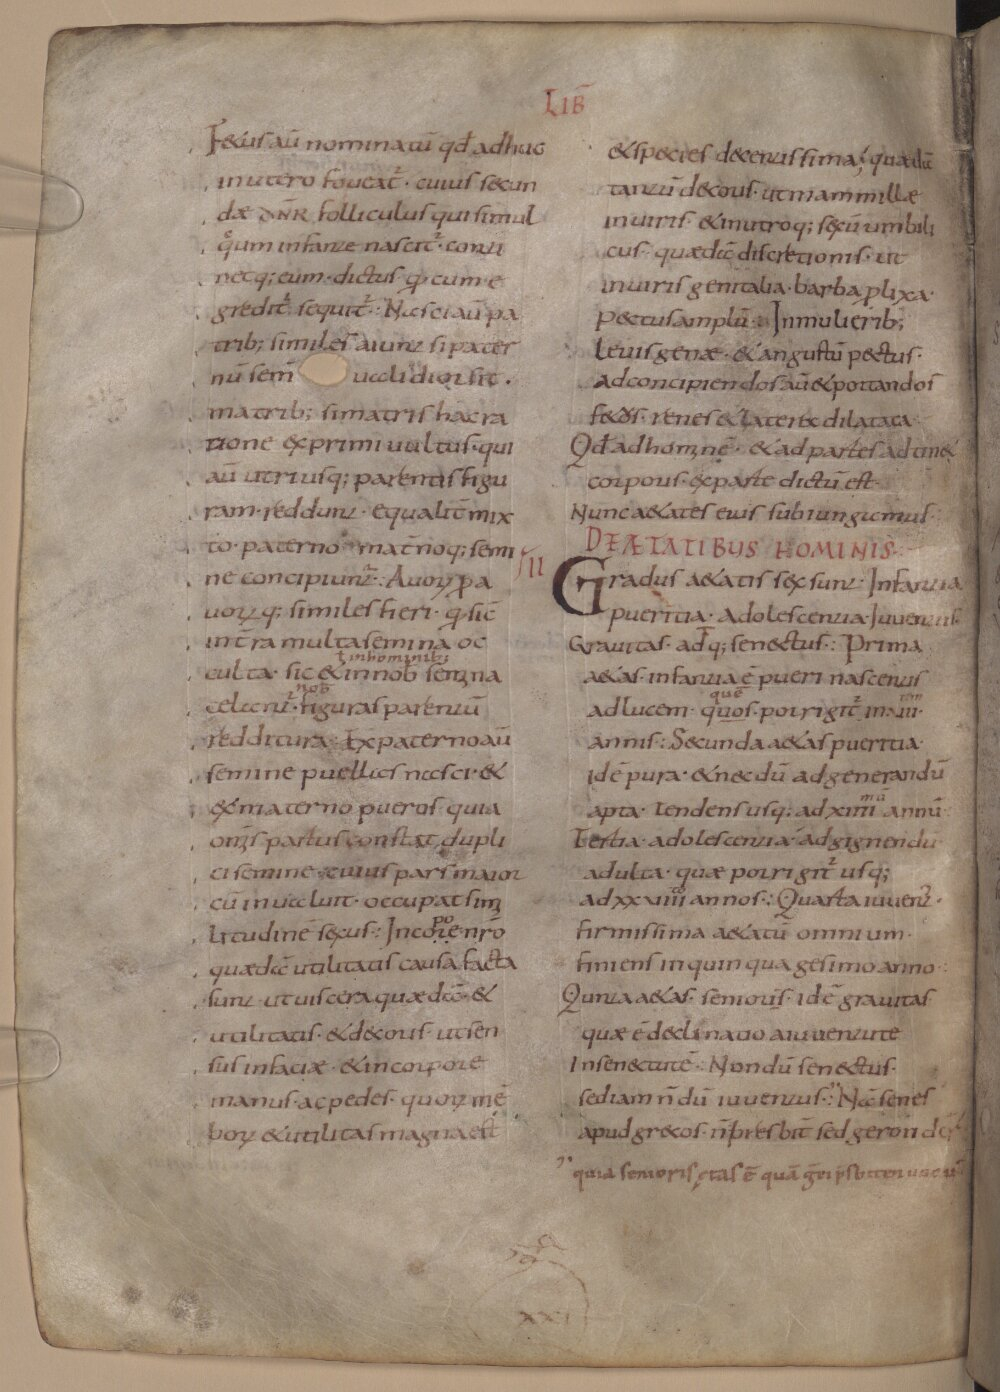 LIB̄
F&us aū nominatū qđ adhuc
in utero foueat᷑· cuius secun
dæ DNR̄ folliculus qui simul
qͦum infante nascit᷑· conti
netq; eum· dictus qđ cum e
gredit᷑ sequit᷑: Nasci aū pa
trib; similes aiunt si pater
nū sem̄ ualidior sit·
matrib; si matris hac ra
tione exprimi uultus· qui
aū utriusq; parentis figu
ram· reddunt· equalit̄ mix
to· paterno mat̄noq; semi
ne concipiunt᷑: Auoꝝ ꝓa
uoꝝq; similes fieri· q̄ sic̄
int̄ra multa semina oc
ł in hominib;
culta· sic & in nob̄ semina
nob̄
celant᷑· figuras parentū
redditura: Ex paterno aū
semine puellas nasci· &
ex materno pueros· quia
om̄s partus constat dupli
ci semine· cuius pars maior
cū inualuit· occupat sim
po
litudinē sexus: In core nr̄o
quædā utilitatis causa facta
sunt· ut uiscera quædā· &
utilitatis· & decoris· ut sen
sus in faciæ· & in corpore
manus· ac pedes· quoꝝ mē
boꝝ & utilitas magna est
& species decentissima; quædā
tantū decoris· ut mammillæ
in uiris· & in utroq; sexū umbili
cus· quædā discretionis· ut
in uiris genitalia· barba ꝓlixa·
pectus amplū: In mulierib;
leuis genæ· & angustū pectus·
ad concipiendos aū & portandos
fetus· renes & latere dilatata·
Qđ ad hominē· & ad partes adtin&
corporis· ex parte dictū est·
Nunc aetates eius subiungimus·
DE ÆTATIBUS HOMINIS·
II
Gradus aetatis sex sunt· Infantia
pueritia· Adolescentia· Iuuentus·
Grauitas· adq; senectus: Prima
aetas· infantia ē pueri nascentis
quē
ad lucem· quos· porrigit᷑ in
annis: Secunda aetas pueritia·
idē pura· & necdū ad generandū
mū
apta· tendens usq; ad xiiii annū·
Tertia· adolescentia· ad gignendū
adulta· quæ porrigit᷑ usq;
ad xxviii annos: Quarta iuuent᷑·
firmissima aetatū omnium·
finiens in quinquagesimo anno:
Quinta aetas· senioris· idē grauitas
quæ ē declinatio a iuuentute
In senectutē: Nondū senectus·
sed iam n̄dū iuuentus: Na senes
apud grecos· n̄ presbit̄ sed geron dr̄
quia senioris ętas ē quā
XXI